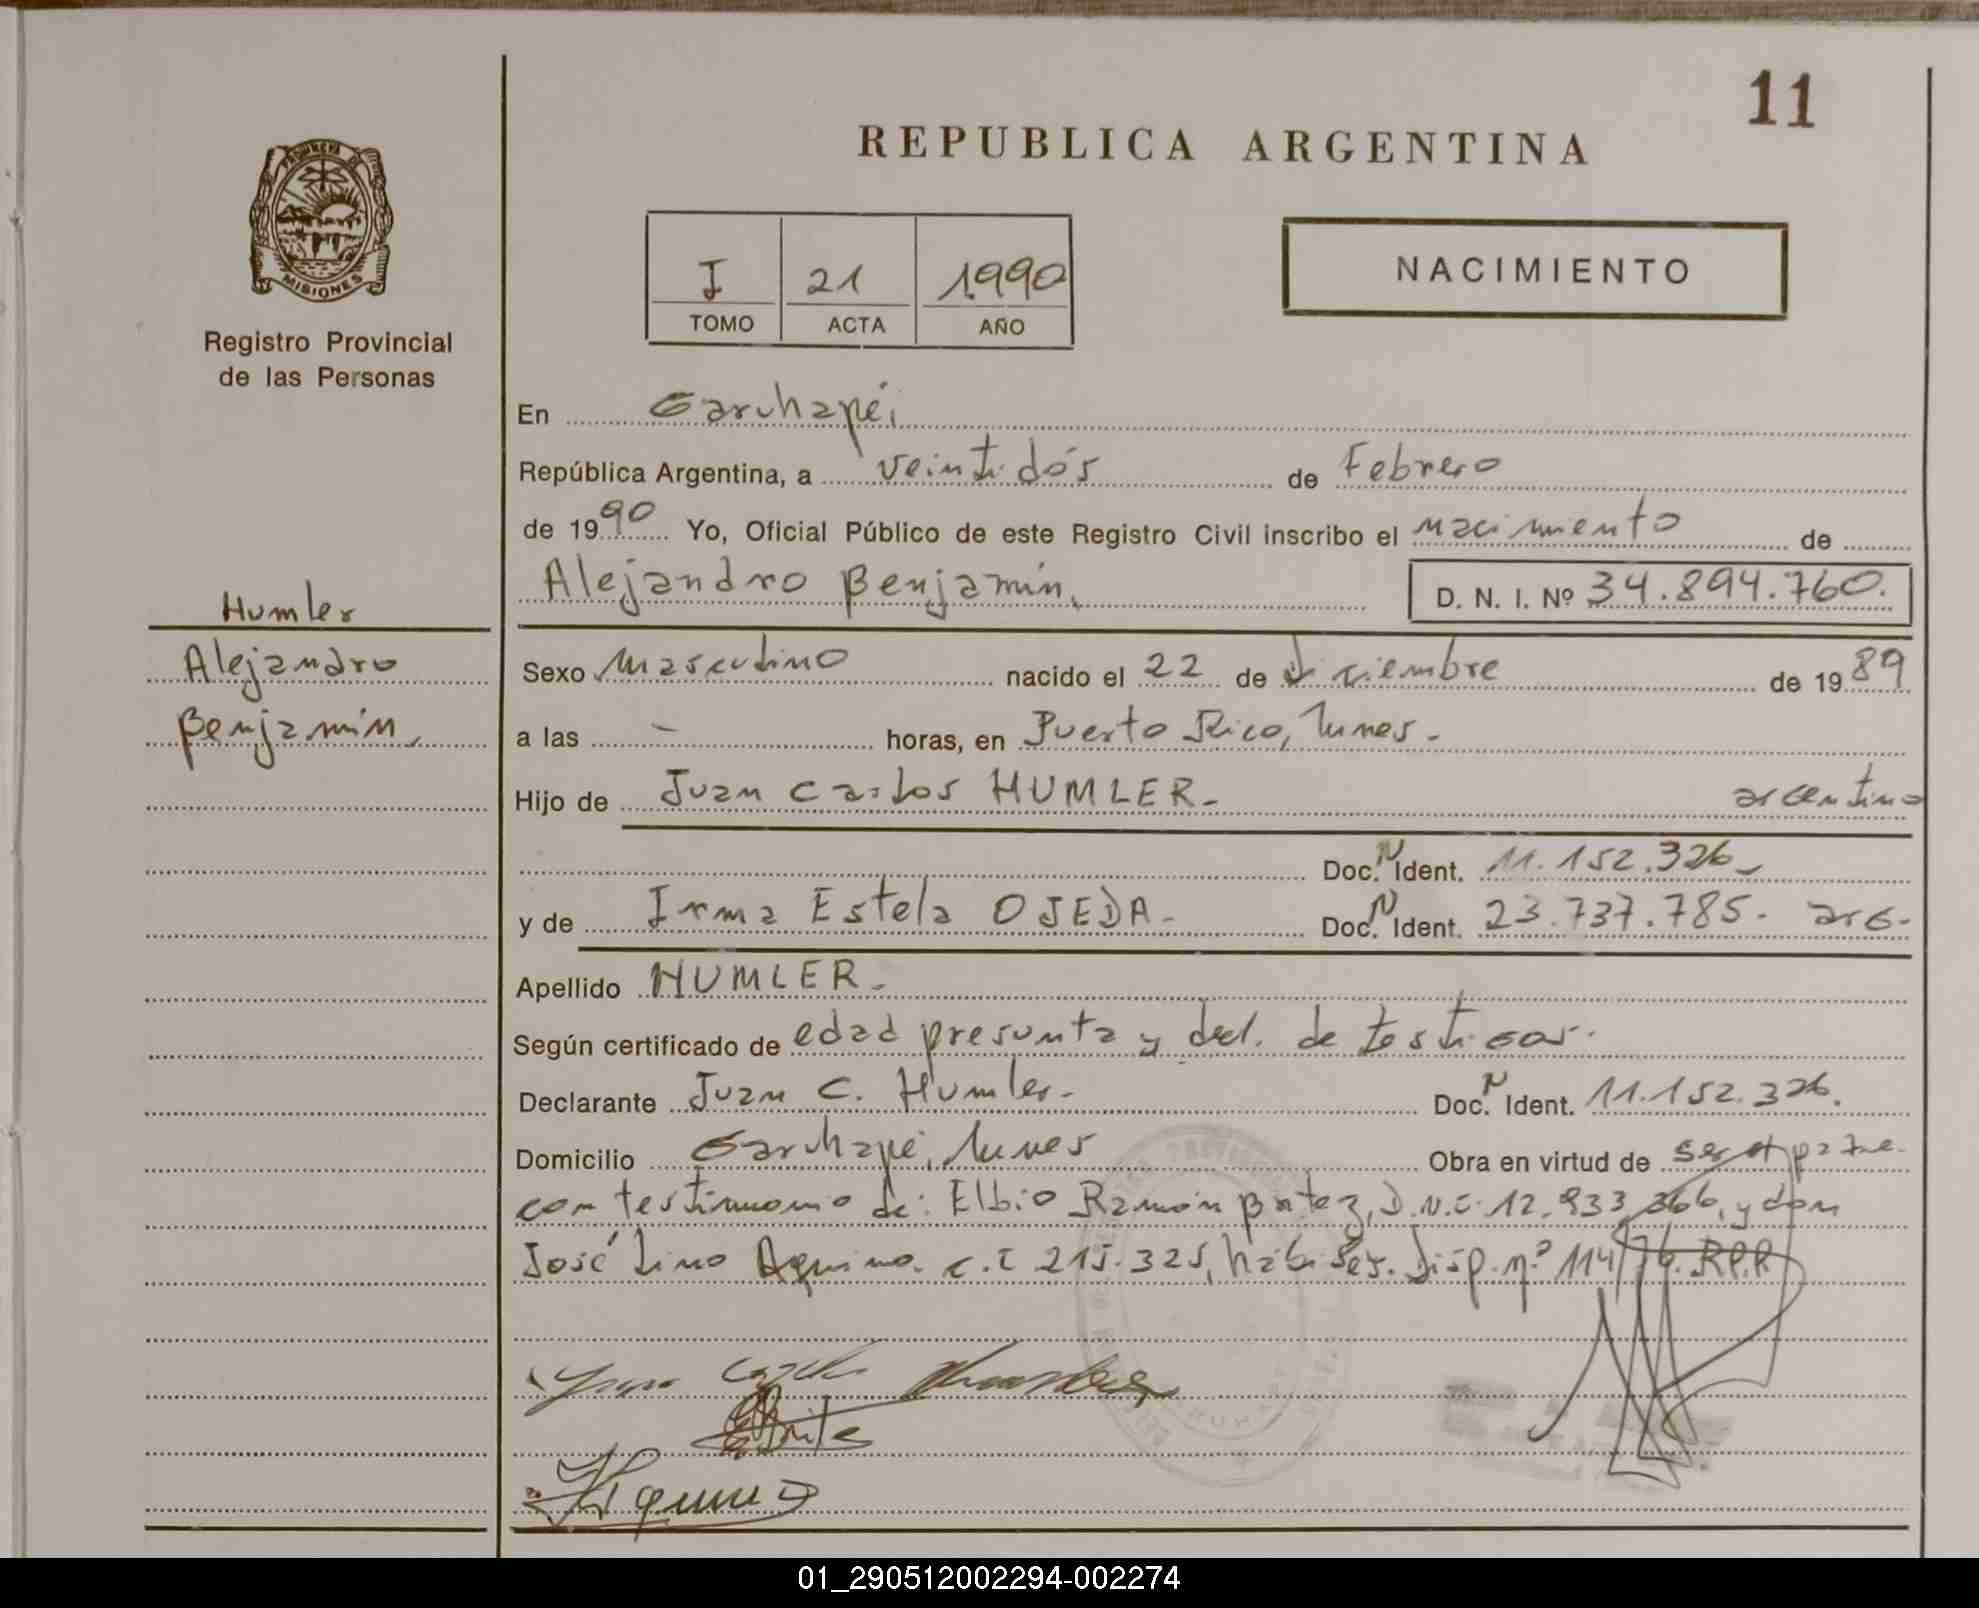 11
REPUBLICA ARGENTINA
PROVINCIA DE
MISIONES
Registro Provincial
de las Personas
I 21 1990
TOMO ACTA AÑO
NACIMIENTO
En Garuhapé,
República Argentina, a veintidós de Febrero
de 1990 Yo, Oficial Público de este Registro Civil inscribo el nacimiento de
Alejandro Benjamín, D. N. I. Nº 34.894.760.
Humler
Alejandro
Benjamín,
Sexo Masculino nacido el 22 de diciembre de 1989
a las - horas, en Puerto Rico, lunes.-
Hijo de Juan Carlos HUMLER.- argentino
Doc. N Ident. 11.152.326
y de Irma Estela OJEDA.- Doc. N Ident. 23.737.785. arg.
Apellido HUMLER.-
Según certificado de edad presunta y decl. de testigos.
Declarante Juan C. Humler.- Doc. N Ident. 11.152.326.
Domicilio Garuhapé, Obra en virtud de ser el padre
con testimonio de: Elbio Ramón D.N.I. 12.933.366, y don
José Lino Aquino. c.I 215.325, Disp. nº 114/76. R.P.P
01_290512002294-002274